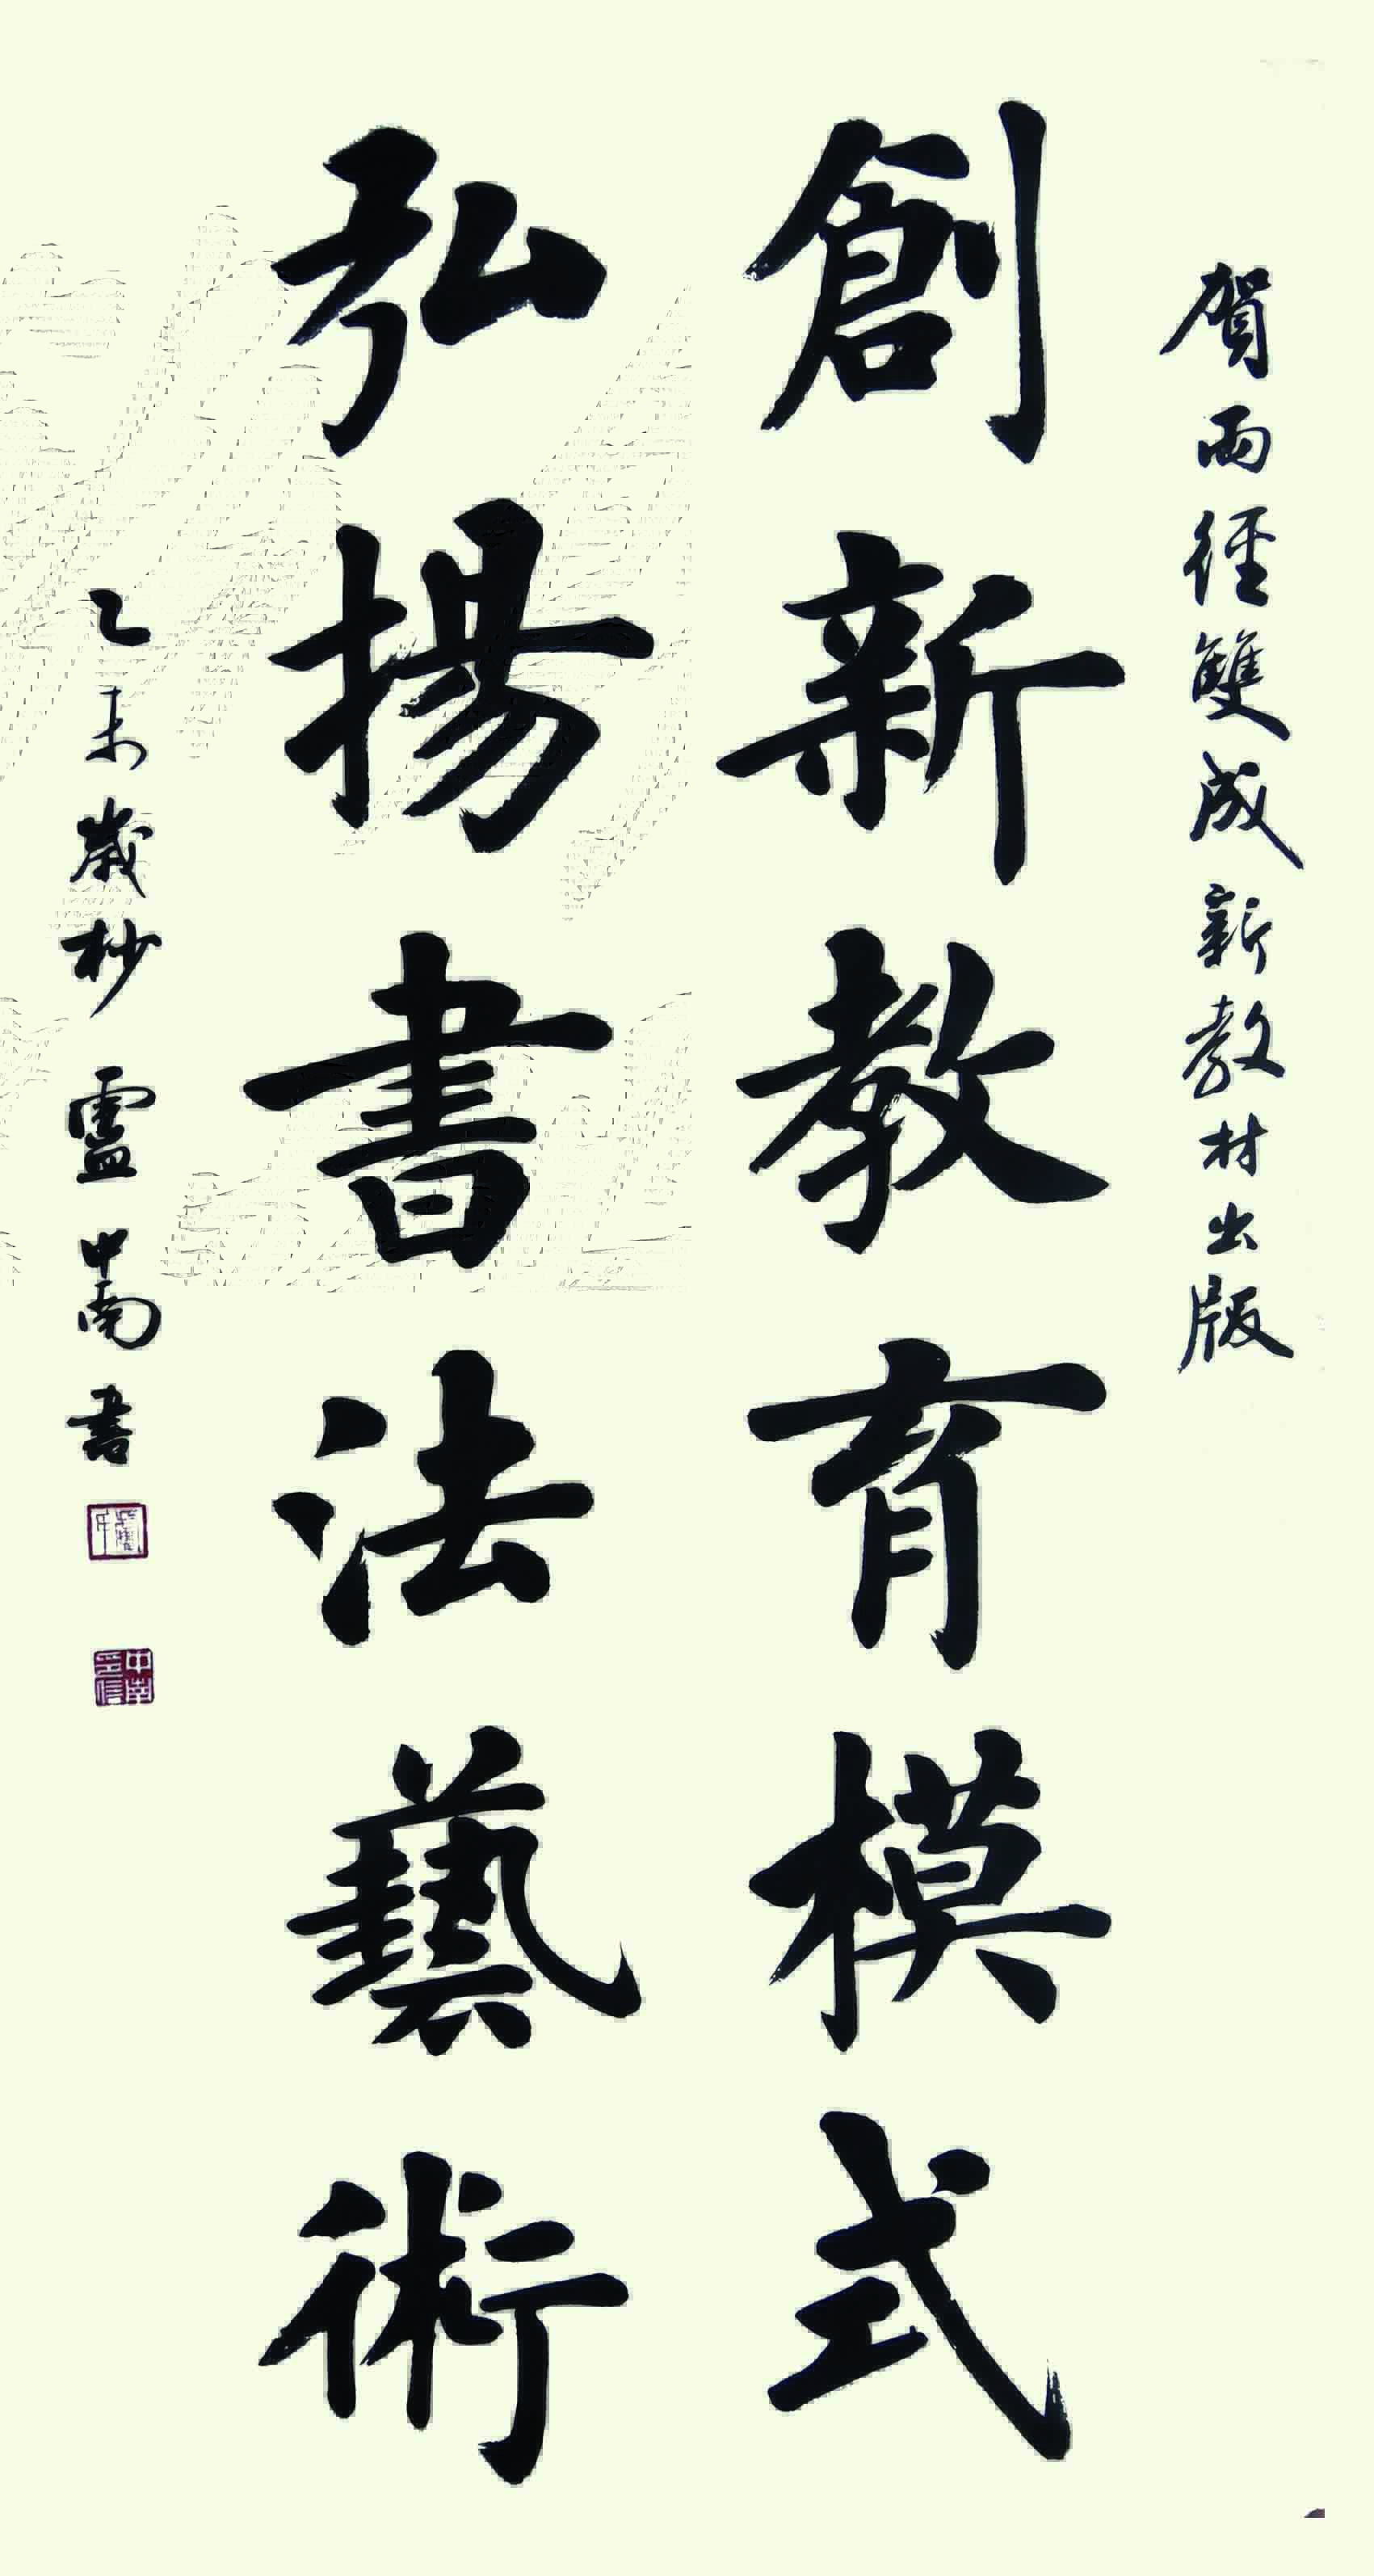 賀兩徑雙成新教材出版
創新教育模式
弘揚書法藝術
乙未歲杪盧中南書
中南印信